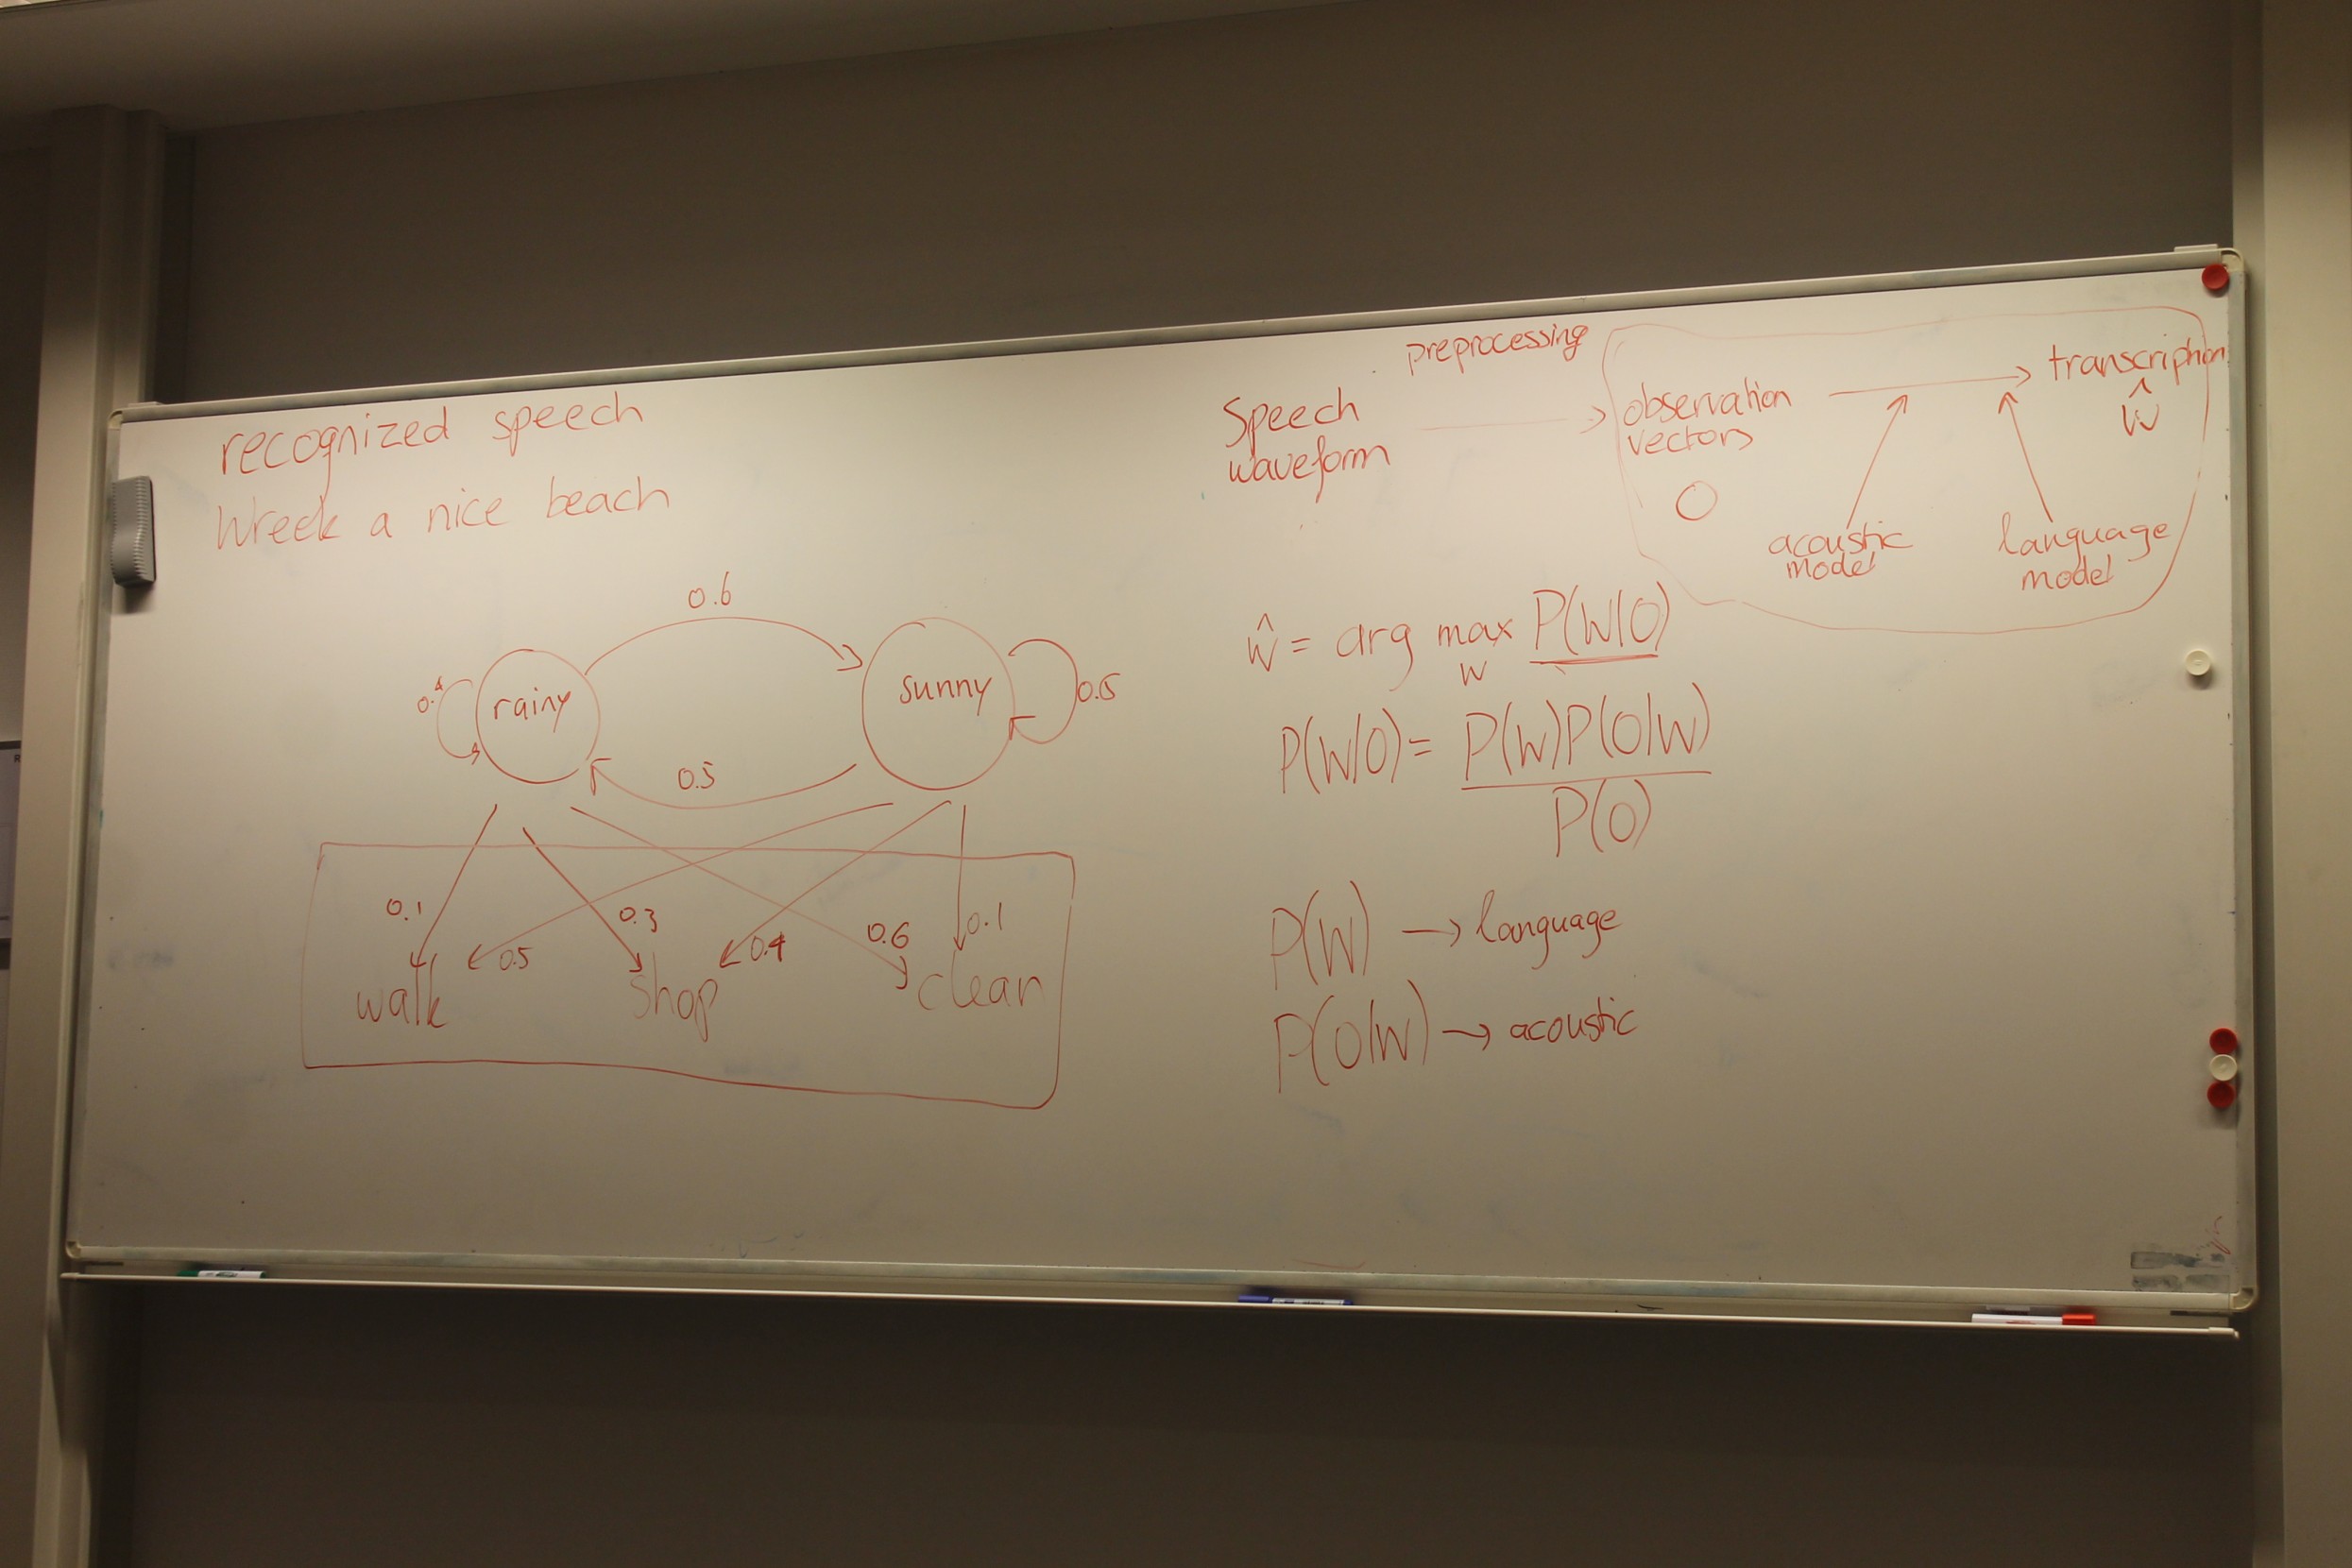 recognized speech
Wreck a nice beach
0.6
0.4
rainy
sunny
0.5
0.5
0.1
0.5
0.3
0.4
0.6
0.1
walk
shop
clean
preprocessing
Speech
waveform
observation
vectors
O
transcription
Ŵ
acoustic
model
language
model
Ŵ = arg max P(W|O)
W
P(W|O) = P(W)P(O|W)
P(O)
P(W) → language
P(O|W) → acoustic